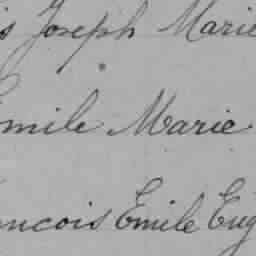 is Joseph Marie
Emile Marie
ancois Emile Eug